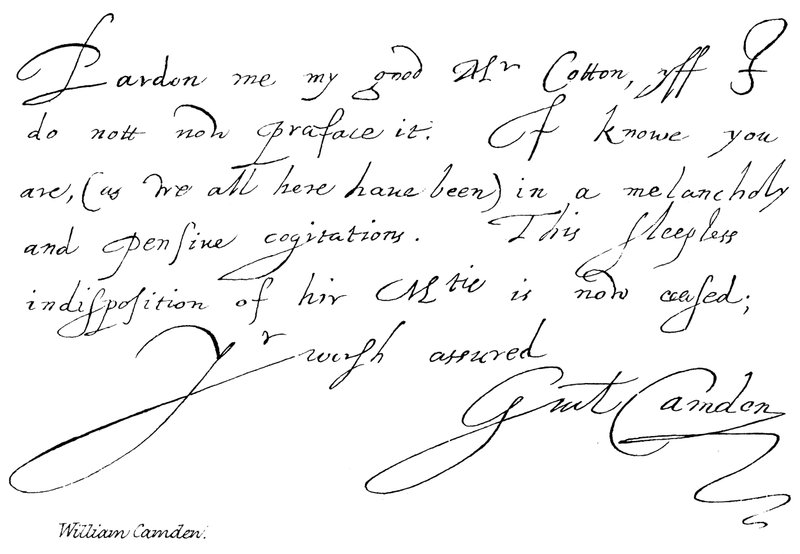 Pardon me my good Mr Cotton, yff I
do nott now præface it. I knowe you
are, (as we all here have been) in a melancholy
and pensive cogitations. This sleepless
indisposition of hir Mtie is now ceased;
Yr wish assured
Guil Camden
William Camden.